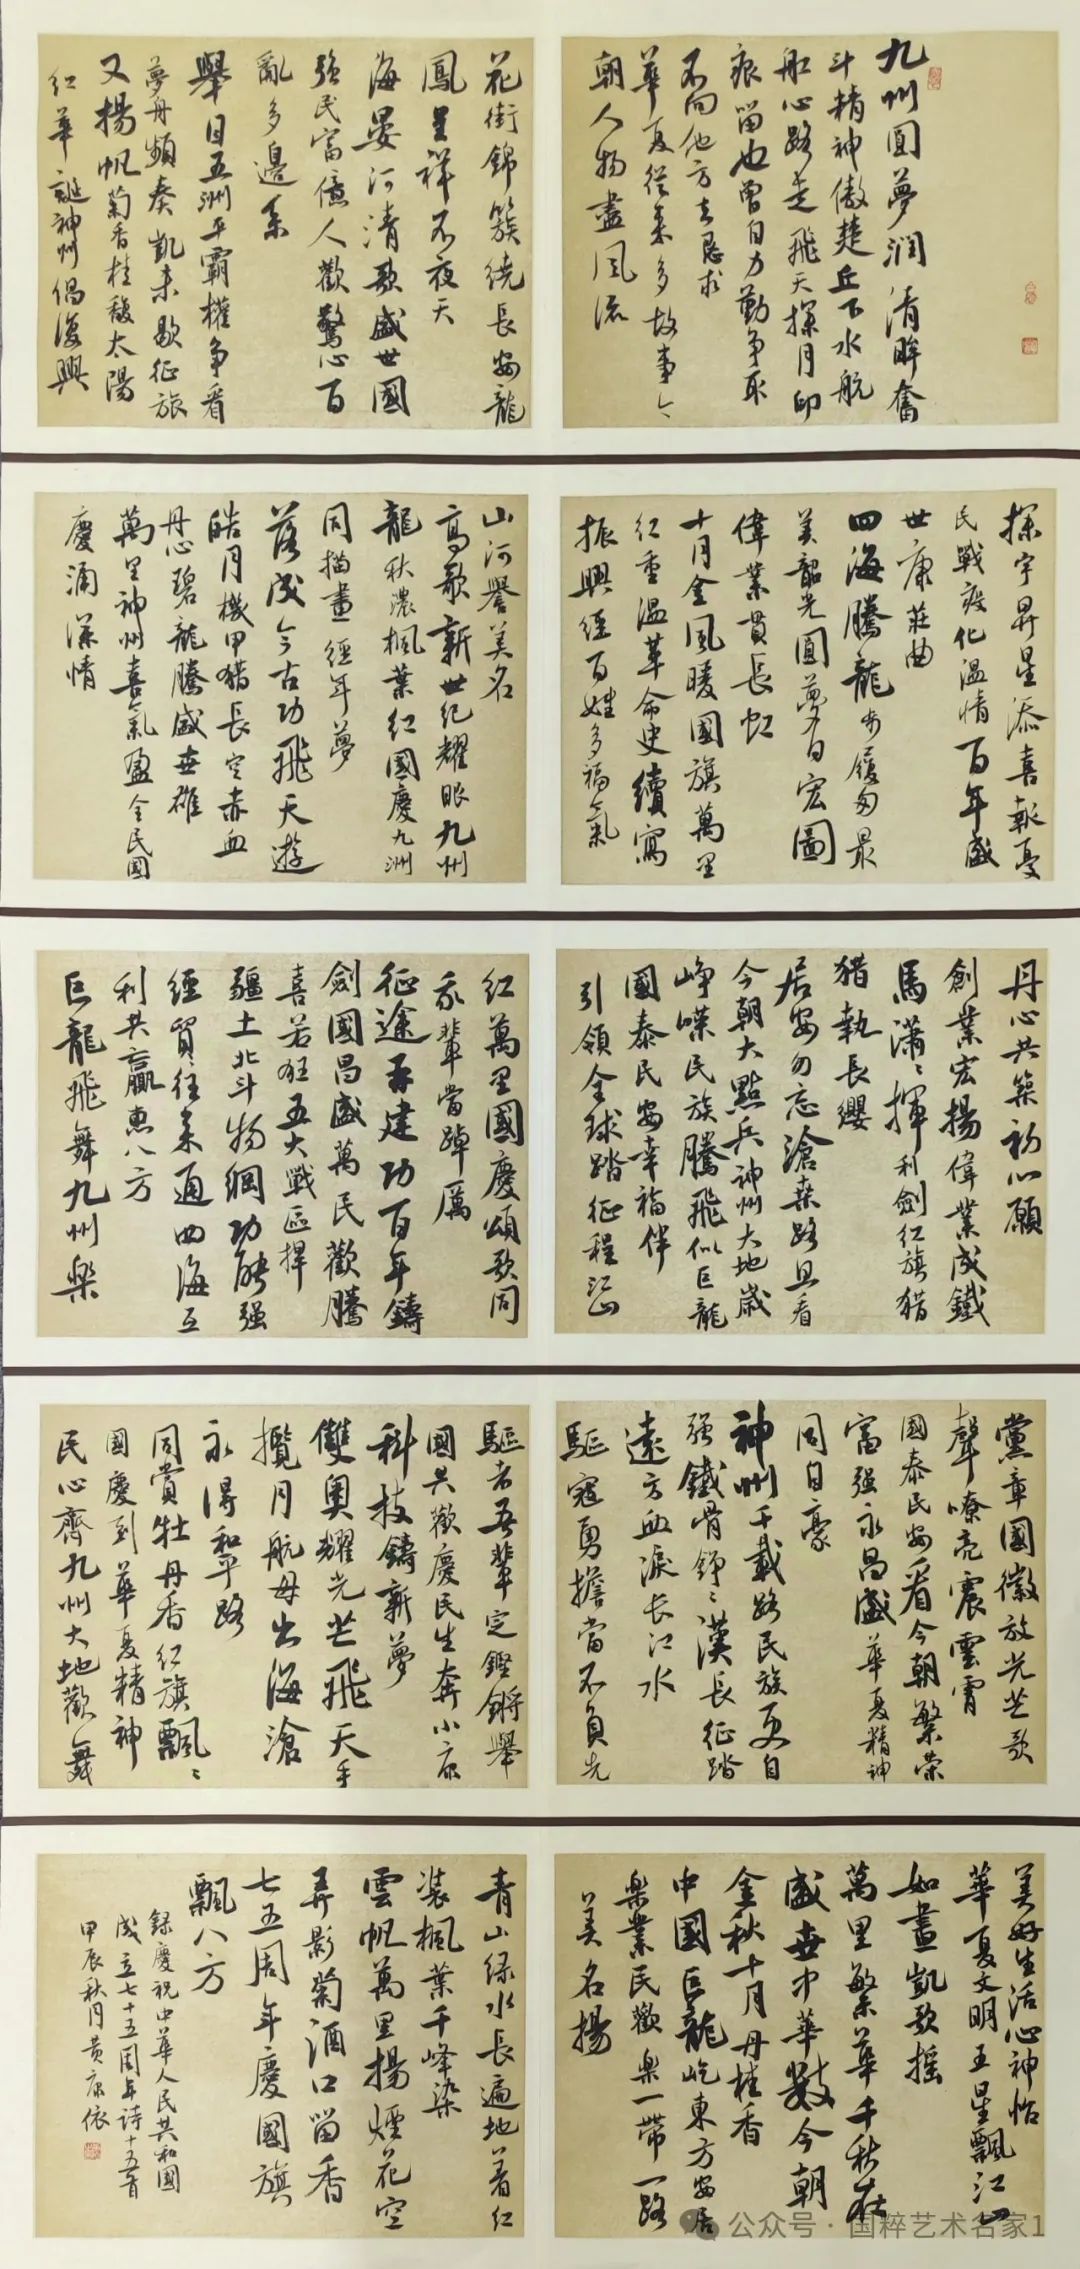 九州圓夢潤清眸奮
斗精神傲楚丘下水航
船心路走飛天探月印
痕留也曾自力勤争取
不向他方去恳求
華夏從来多故事今
朝人物盡風流
花街錦簇繞長安龍
鳳呈祥不夜天
海晏河清歌盛世國
强民富億人歡驚心百
亂多邊系
舉目五洲平霸權争看
夢舟頻奏凱未歇征旅
又揚帆菊香桂馥太陽
红華誕神州倡復興
探宇昇星添喜報憂
民戰疫化温情百年盛
世康莊曲
四海騰龍步履匆最
美韶光圓夢日宏圖
偉業貫長虹
十月金風暖國旗萬里
红重温革命史續寫
振興經百姓多福氣
山河譽美名
高歌新世纪耀眼九州
龍秋濃楓葉红國慶九洲
同描畫經年夢
落成今古功飛天遊
皓月機甲猎長空赤血
丹心碧龍騰盛世雄
萬里神州喜氣盈全民國
慶涌深情
丹心共築初心願
創業宏揚偉業成鐵
馬瀟瀟揮利劍红旗猎
猎執長纓
居安勿忘滄桑路且看
今朝大點兵神州大地歲
崢嶸民族騰飛似巨龍
國泰民安幸福伴
引領全球踏征程江山
红萬里國慶頌歌同
我輩當踔厲
征途再建功百年鑄
劍國昌盛萬民歡騰
喜若狂五大戰區捍
疆土北斗物綱功能强
經貿往来通四海互
利共贏惠八方
巨龍飛舞九州樂
黨章國徽放光芒歌
聲嘹亮震雲霄
國泰民安看今朝繁荣
富强永昌盛華夏精神
同自豪
神州千載路民族更自
强鐵骨錚錚漢長征踏
遠方血淚长江水
驅寇勇擔當不負先
驅者吾輩定鏗鏘舉
國共歡慶民生奔小康
科技鑄新夢
雙奥耀光芒飛天手
攬月航母出海滄
永得和平路
同賞牡丹香红旗飄飄
國慶到華夏精神
民心齊九州大地歡舞
美好生活心神怡
華夏文明五星飄江山
如畫凱歌摇
萬里繁華千秋在
盛世中華數今朝
金秋十月丹桂香
中國巨龍屹東方安居
樂業民歡樂一帶一路
美名揚
青山绿水長遍地著红
装楓葉千峰染
雲帆萬里揚煙花空
弄影菊酒口留香
七五周年慶國旗
飄八方
録慶祝中華人民共和國
成立七十五周年詩十五首
甲辰秋月黄康依
公众号·国粹艺术名家1